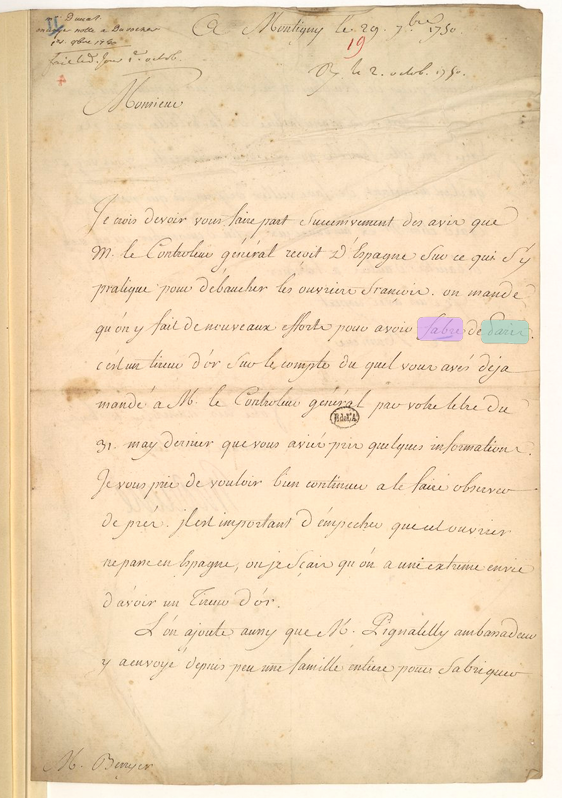 Duval
1er. 8bre 1750
A Montigny le 29. 7.bre 1750.
19
Rx le 2. octob. 1750.
4
Monsieur
Je crois devoir vous faire part succinvement des avis que
M. le Controleur général reçoit d'Espagne sur ce qui s'y
pratique pour débaucher les ouvriers francois. on mande
qu'on y fait de nouveaux efforts pour avoir fabre de Paris.
c'est un tireur d'or sur le compte du quel vous avés déja
mandé a M. le Controleur général par votre letre du
31. may dernier que vous aviés pris quelques informations.
Je vous prie de vouloir bien continuer a le faire observer
de prés. jl est important d'empecher que cet ouvrier
ne passe en Espagne, ou je sçais qu'on a une extreme envie
d'avoir un Tireur d'or.
L'on ajoute aussy que M. Pignatelly ambassadeur
y a envoyé depuis peu une famille entiere pour fabriquer
M. Berryer